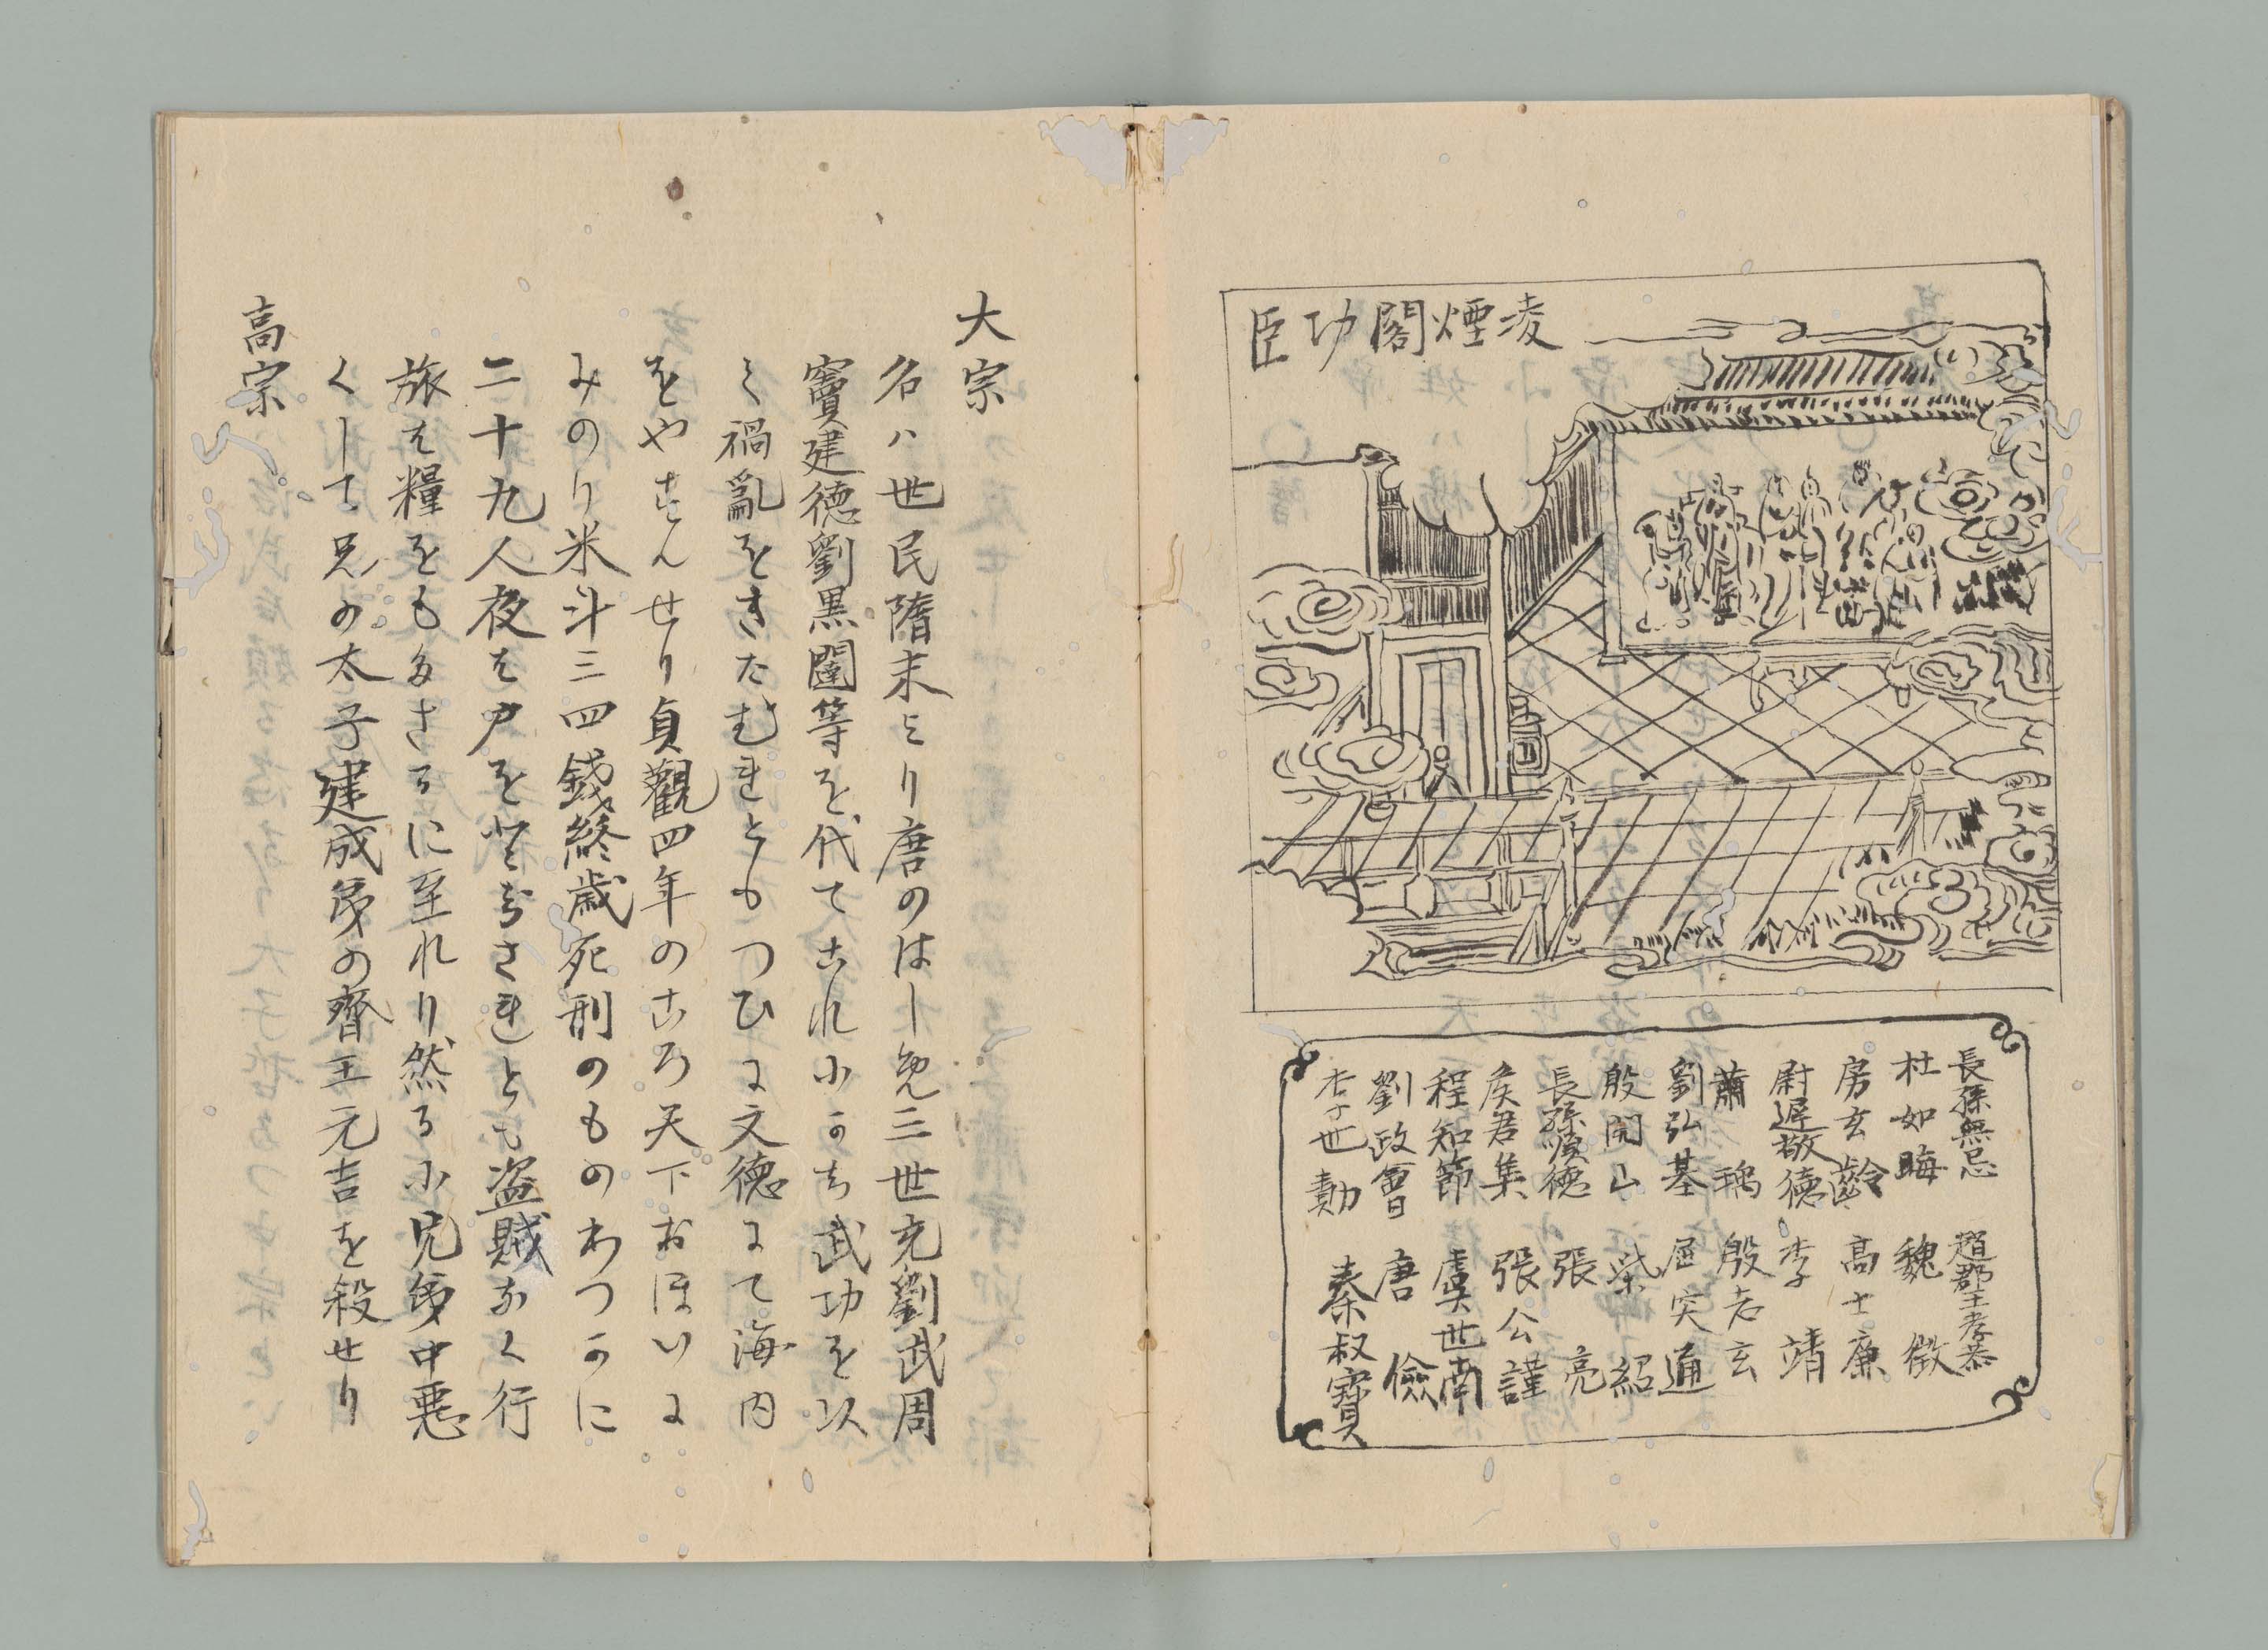 凌煙閣功臣
長孫無忌　趙郡王孝恭
杜如晦　魏徴
房玄齡　高士廉
尉遲敬德　李靖
蕭瑀　殷志玄
劉弘基　屈突通
殷開山　柴紹
長孫順徳　張亮
侯君集　張公謹
程知節　虞世南
劉政會　唐儉
李世勣　秦叔寶
大宗
名ハ世民隋末より唐のはしめ三世充劉武周
竇建徳劉黒闥等を代てこれにかち武功を以
て禍亂をきたむれともつひに文徳にて海内
をやすんせり貞觀四年のころ天下おほいに
みのり米斗三四錢終歳死刑のものわつかに
二十九人夜も戸をとちされとも盗賊なく行
旅も糧をもたさるに至れり然るに兄弟中悪
くして兄の太子建成弟の齊王元吉を殺せり
高宗